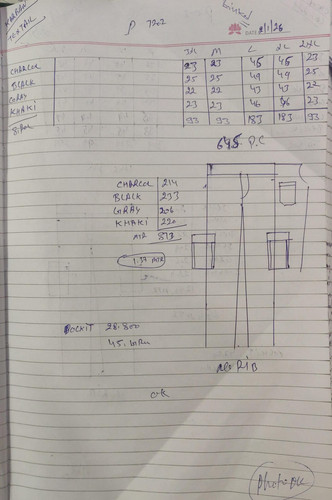 P 7262
DATE 8/1/26
M L XL 2XL
CHARCOL 23 23 45 45 23
BLACK 25 25 49 49 25
GRAY 22 22 43 43 22
KHAKI 23 23 46 46 23
93 93 183 183 93
645 P.C
CHARCOL 214
BLACK 233
GRAY 206
KHAKI 220
MTR 873
1.37 MTR
POCKIT 28.800
45.
RIB
OK